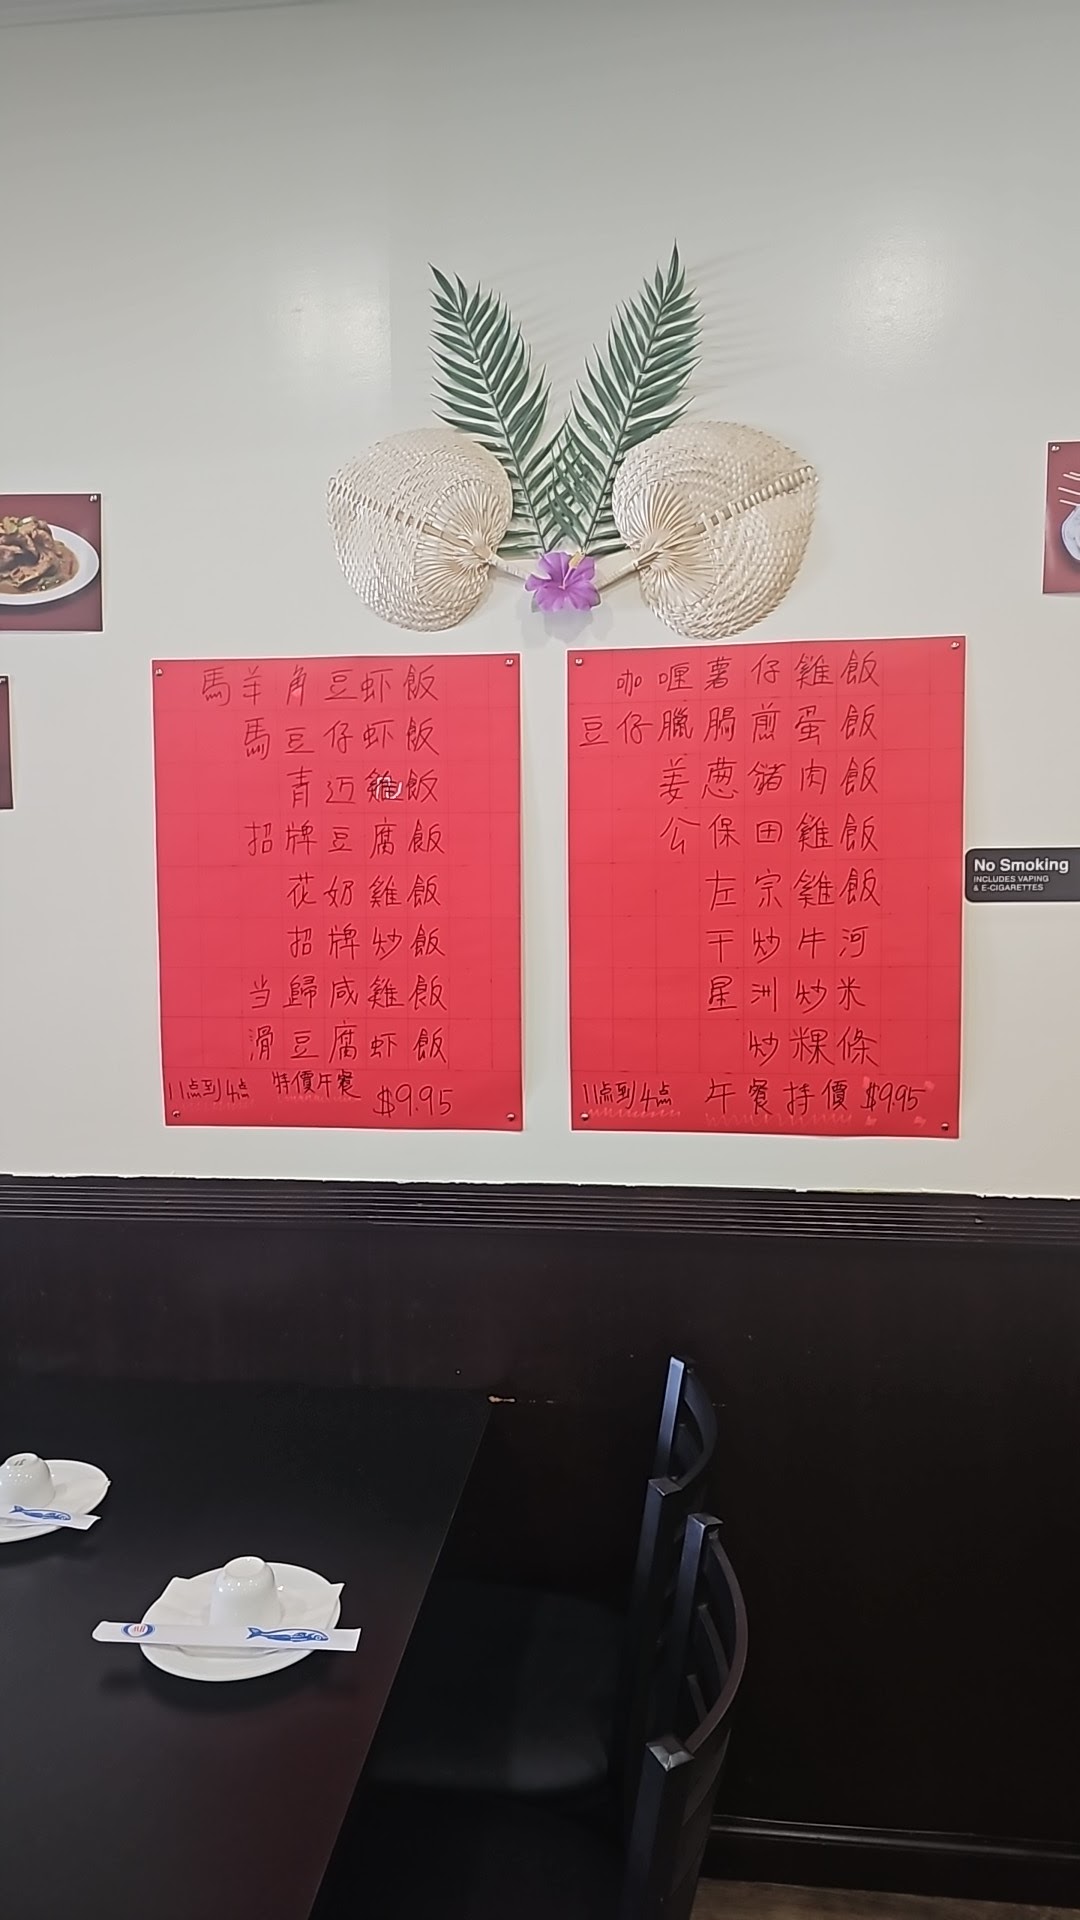 馬羊角豆虾飯
馬豆仔虾飯
青迈雞飯
招牌豆腐飯
花奶雞飯
招牌炒飯
当歸咸雞飯
滑豆腐虾飯
11点到4点 特價午餐 $9.95
咖喱薯仔雞飯
豆仔臘腸煎蛋飯
姜葱豬肉飯
公保田雞飯
左宗雞飯
干炒牛河
星洲炒米
炒粿條
11点到4点 午餐持價 $9.95
No Smoking
INCLUDES VAPING
& E-CIGARETTES